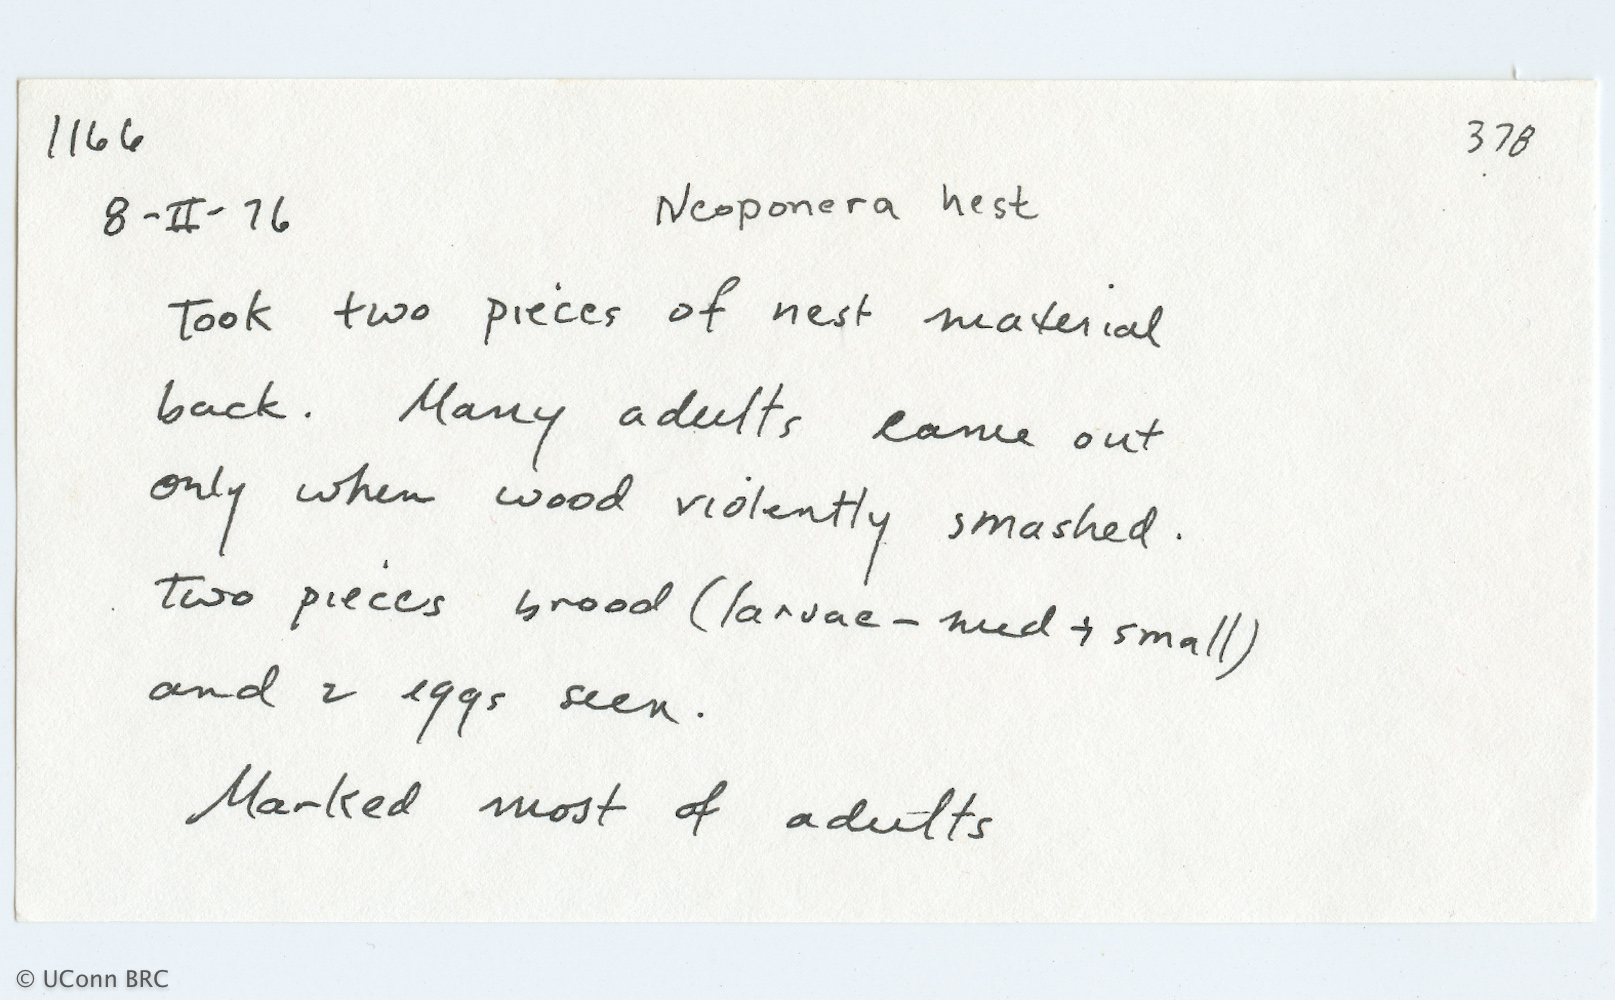 1166
378
8-II-76
Neoponera nest
Took two pieces of nest material
back. Many adults came out
only when wood violently smashed.
Two pieces brood (larvae - med + small)
and 2 eggs seen.
Marked most of adults
© UConn BRC